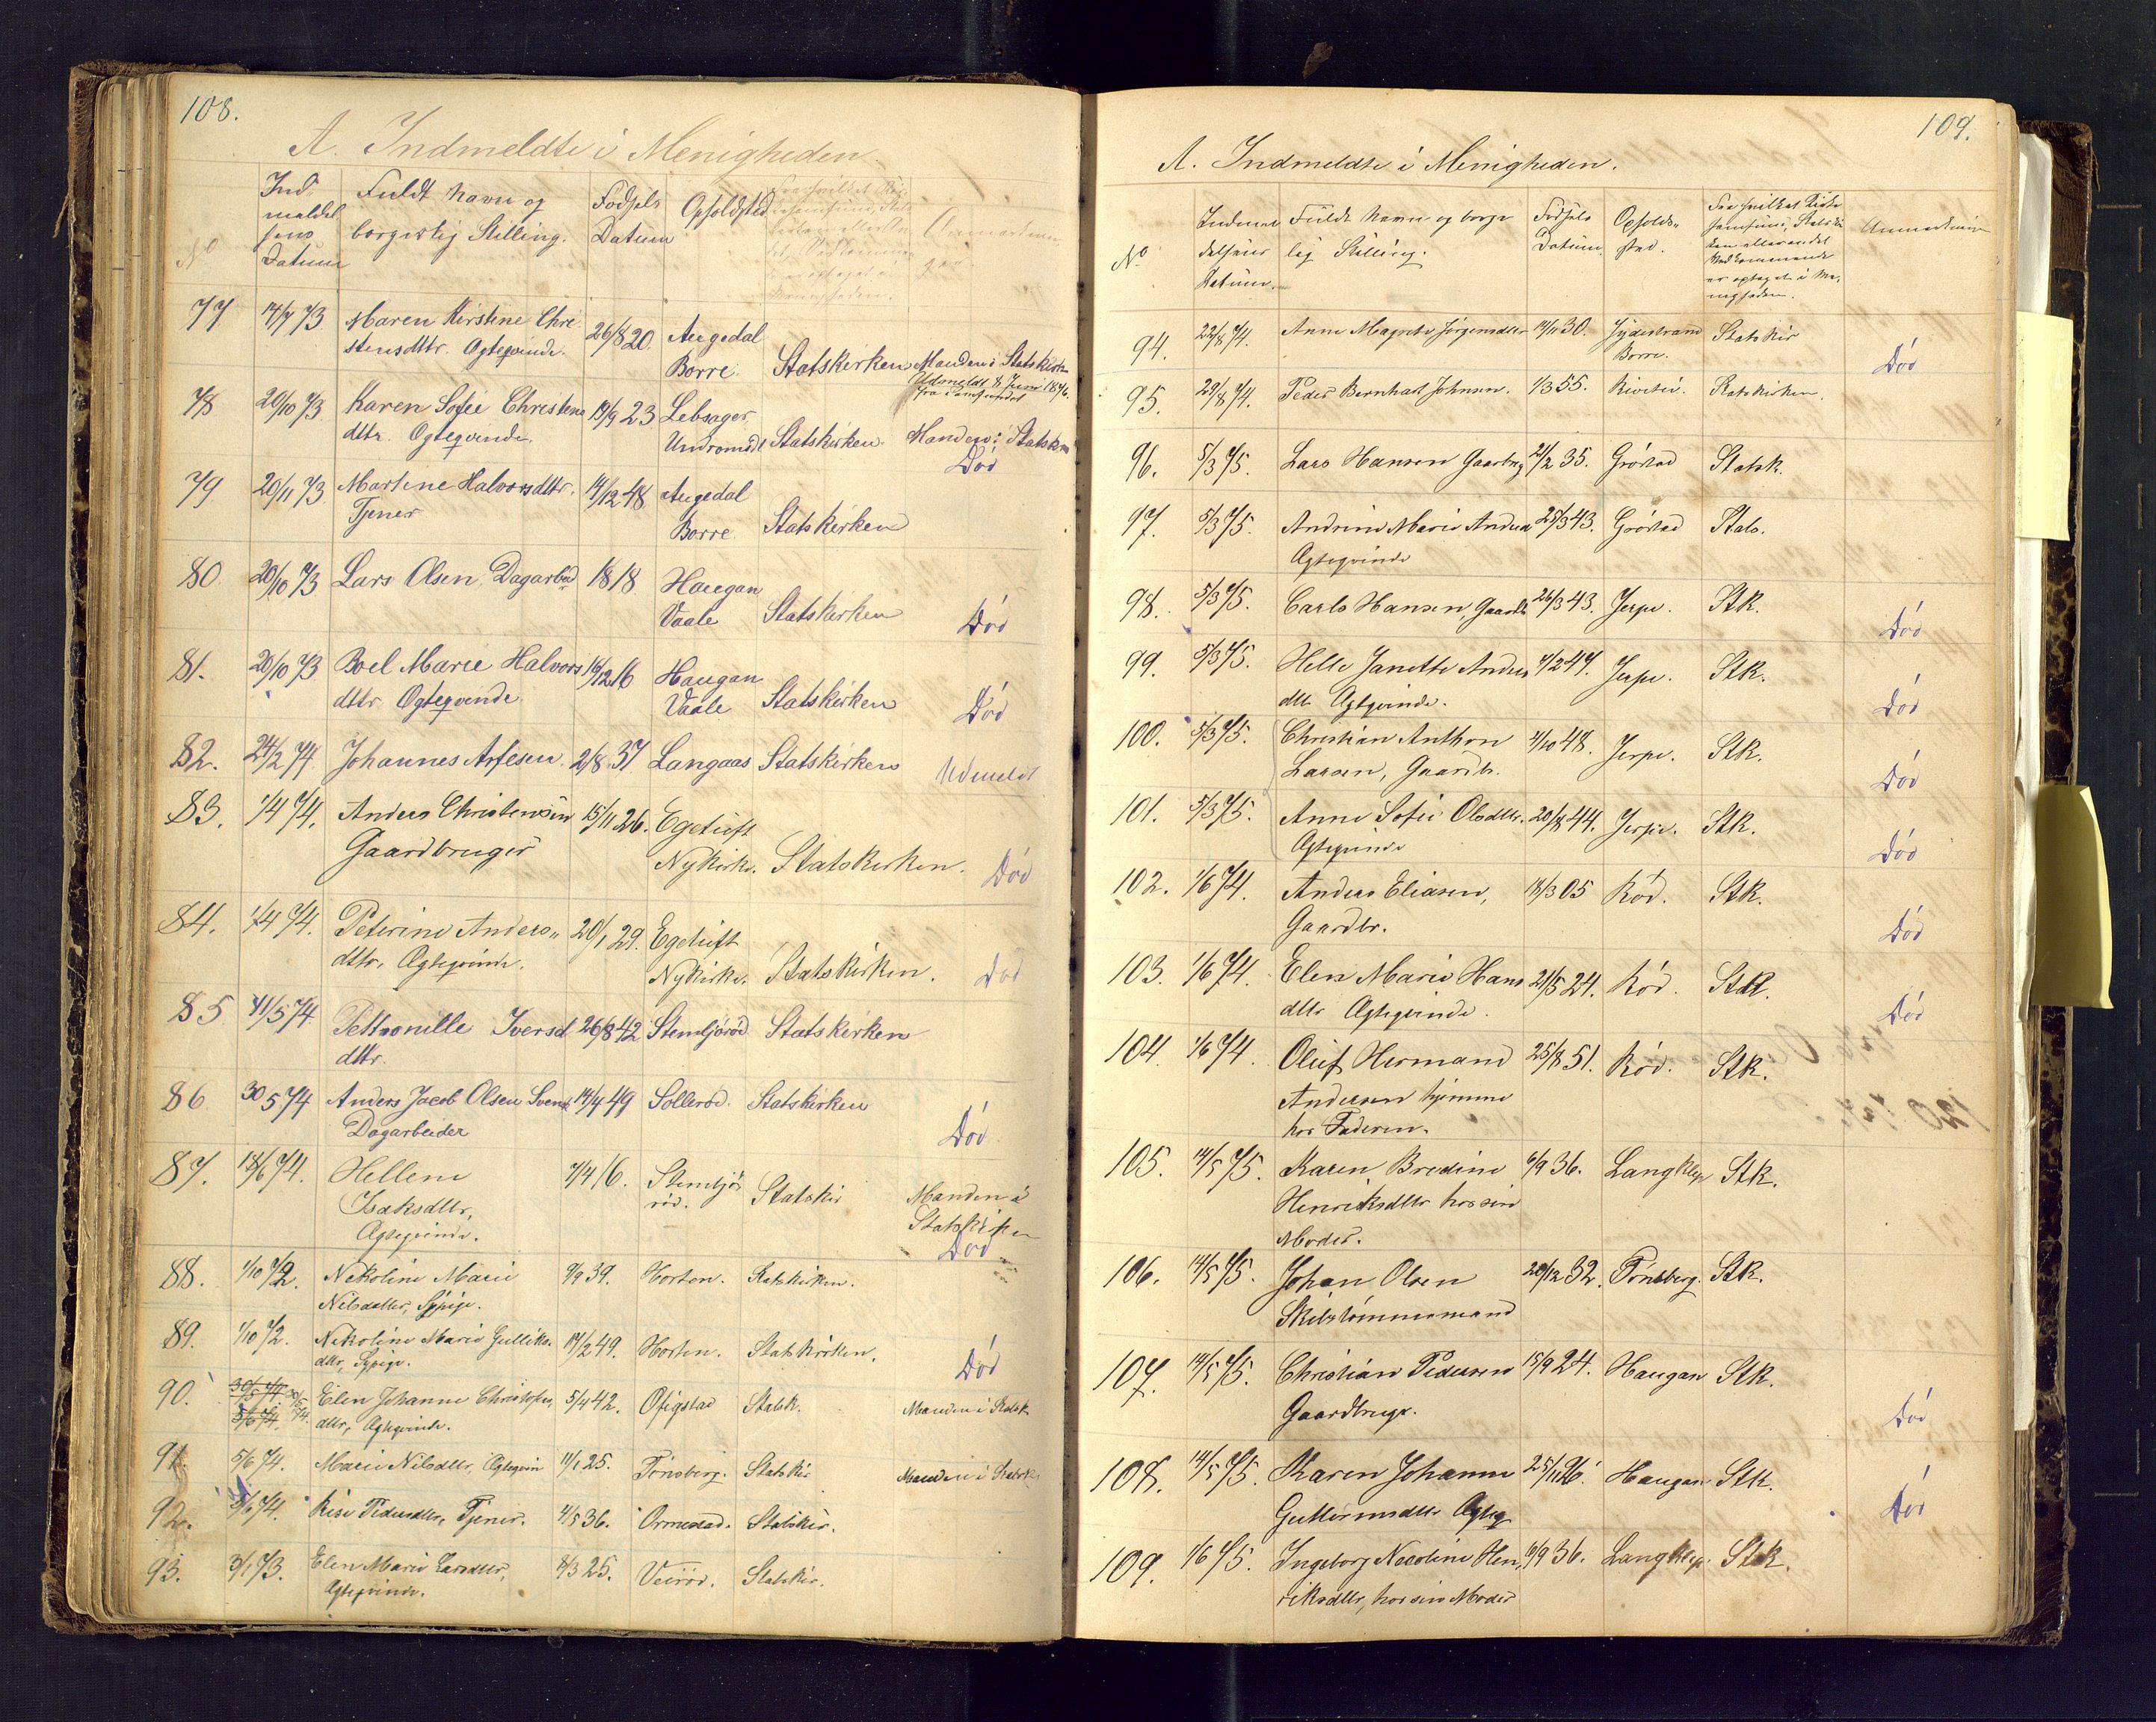 108.
A. Indmeldte i Menigheden.
No
Ind
meldel
sens
Datum
Fuldt Navn og
borgerlig Stilling.
Fødsels
Datum
Opholdsted
77 14/7 73. Maren Kirstine Chri
stensdttr. Ogteqvinde. 26/8 20. Augedal
Borre. Statskirken Manden i Statskirk
Udmeldt 8 Juni 1876.
fra Samfundet
78 20/10 73 Karen Sofie Christens
dttr. Ogteqvinde. 19/9 23 Lebsager
Undromsdl Statskirken. Manden i Statsk
Död
79 20/11 73 Martine Halvorsdttr.
Tjener 14/12 48 Augedal
Borre Statskirken
80 20/10 73 Lars Olsen, Dagarbed 1818 Haugan
Vaale Statskirken Död
81. 20/10 73 Boel Marie Halvors
dttr Ogteqvinde 16/12 16 Haugan
Vaale Statskirken Död
82. 24/2 74. Johannes Arfesen 2/8 37 Langaas Statskirken Udmeldt
83. 1/4 74. Anders Christensen
Gaardbruger 15/11 26. Egetuft
Nykirke. Statskirken. Död
84. 1/4 74. Peterine Anders„
dttr, Ægteqvinde. 20/1 29. Egetuft
Nykirke. Statskirken. Död
85 11/5 74. Pettronille Iversd
dttr. 26/8 42 Stemtjöröd Statskirken
86 30 5 74 Anders Jacob Olsen Svends
Dagarbeider 14/4 49 Solleröd. Statskirken Död
87. 18/6 74. Hellene
Isaksdttr,
Ægteqvinde. 7/4 16. Stemtjö
röd. Statskir Manden i
Statskirken
Död
88. 1/10 72. Nekoline Marie
Nilsdatter, Sypige. 9/9 39. Horten. Statskirken.
89. 1/10 72. Nekoline Marie Gulliks.
dttr, Sypige. 14/2 49. Horten. Statskirken. Död
90. 30/5 74
5/6 74. 30/5 74. Elen Johanne Christofers,
dttr, Ægteqvinde. 5/4 42. Ofigstad Statsk. Manden i Statsk
91. 5/6 74. Marie Nilsdttr, Ægteqvin 11/1 25. Tönsberg. Statskir Manden i Statsk
92. 5/6 74. Risi Pedersdttr, Tjener. 4/5 36. Ormestad. Statskir.
93. 3/1 73. Elen Marie Larsdttr,
Ægteqvinde. 8/3 25. Veiröd. Statskir.
109.
A. Indmeldte i Menigheden.
No
Indmel
delsens
Datum.
Fuldt Navn og borger
lig Stilling.
Fødsels
Datum.
Opholds„
sted.
Fra hvilket Reli
samfund, Statskir
ken eller andet
Vedkommende
er optaget i Me,
nigheden.
94. 22/8 74. Anne Magrete Jörgensdttr 14/11 30. Jydestrand
Borre. Statskir Död
95. 29/8 74. Peder Bernhart Johnsen. 1/3 55. Statskirken.
96. 5/3 75. Lars Hansen Gaardbrg 21/2 35. Gröstad Statsk.
97. 5/3 75. Andrine Marie Anders
Ægteqvinde 25/3 43. Gröstad Stats.
98. 5/3 75. Carls Hansen, Gaardb 26/3 43. Jerpe. Stk. Död
99. 5/3 75. Helle Janette Anders
dtt Ægteqvinde. 4/2 47. Jerpe. Stk. Död
100. 5/3 75. Christian Anthon
Larsen, Gaardb. 4/10 48. Jerpe. Stk. Död
101. 5/3 75. Anne Sofie Olsdttr.
Ægteqvinde 20/8 44. Jerpe. Stk. Död
102. 1/6 74. Anders Eliasen,
Gaardbr. 18/3 05 Röd. Stk. Död
103. 1/6 74. Elen Marie Hans
dttr Ægteqvinde. 21/5 24. Röd. Stk. Död
104. 1/6 74. Oluf Hermand
Andersen hjemme
hos Faderen. 25/8 51. Röd. Stk.
105. 14/5 75. Karen Bredine
Henriksdttr hos sin
Moder. 6/9 36. Langklep Stk.
106. 14/5 75. Johan Olsen
Skibstömmermand 20/12 32. Tönsberg. Stk.
107. 14/5 75. Christian Pedersen
Gaardbruger. 15/9 24. Haugan Stk. Död
108. 14/5 75. Karen Johanne
Guttormsdttr Ægteq 25/11 26. Haugan Stk. Död
109. 1/6 75. Ingeborg Nicoline Hen,
riksdttr, hos sin Moder 6/9 36. Langklep. Stk.